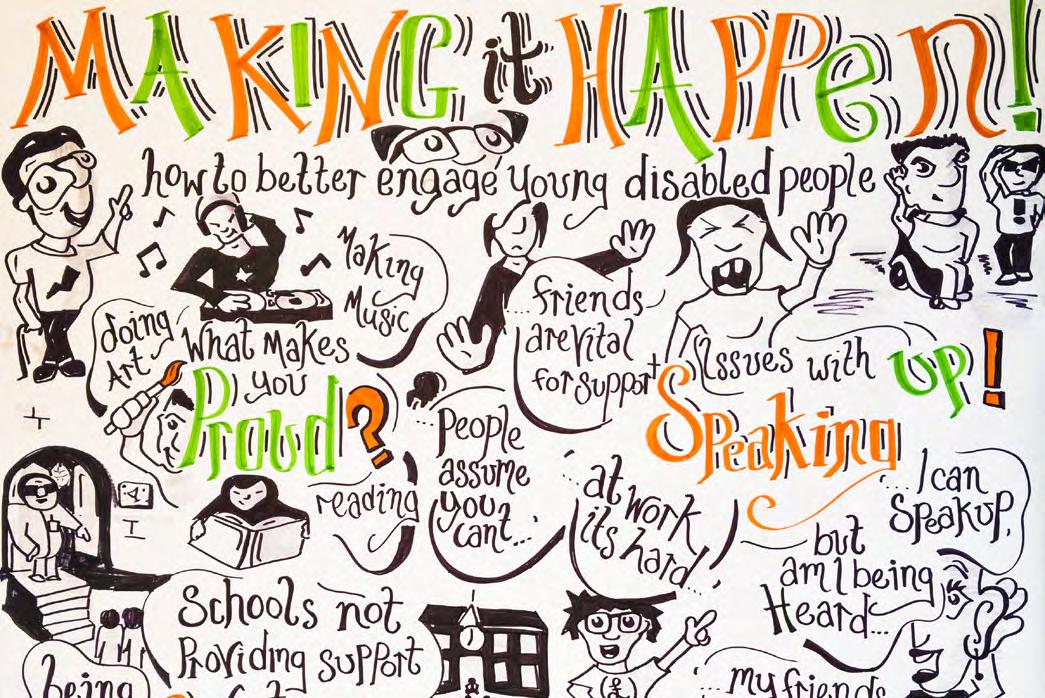 MAKING it HAPPen!
how to better engage young disabled people
Making
Music
doing
Art
What Makes
you
Proud?
reading
...friends
are vital
for support
Issues with
Speaking UP!
People
assume
you
can't...
...at work
its hard
...I can
Speak up,
but
am I being
Heard...
Schools not
Providing support
being
...my friends